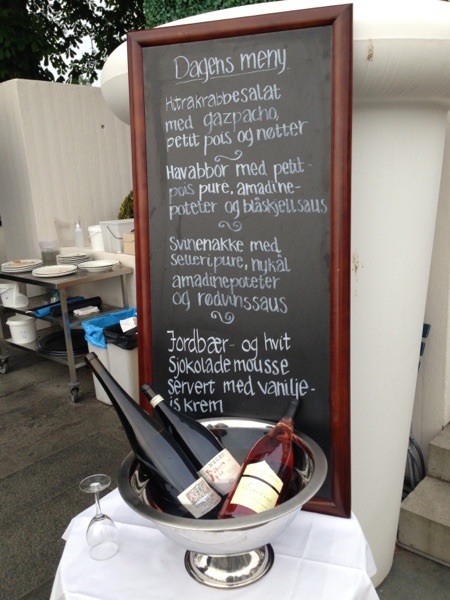 Dagens meny
Hitrakrabbesalat
med gazpacho,
petit pois og nøtter
Havabbor med petit-
pois pure, amadine-
poteter og blåskjellsaus
Svinenakke med
selleripure, nykål
amadinepoteter
og rødvinssaus
Jordbær- og hvit
Sjokolademousse
servert med vanilje-
iskrem